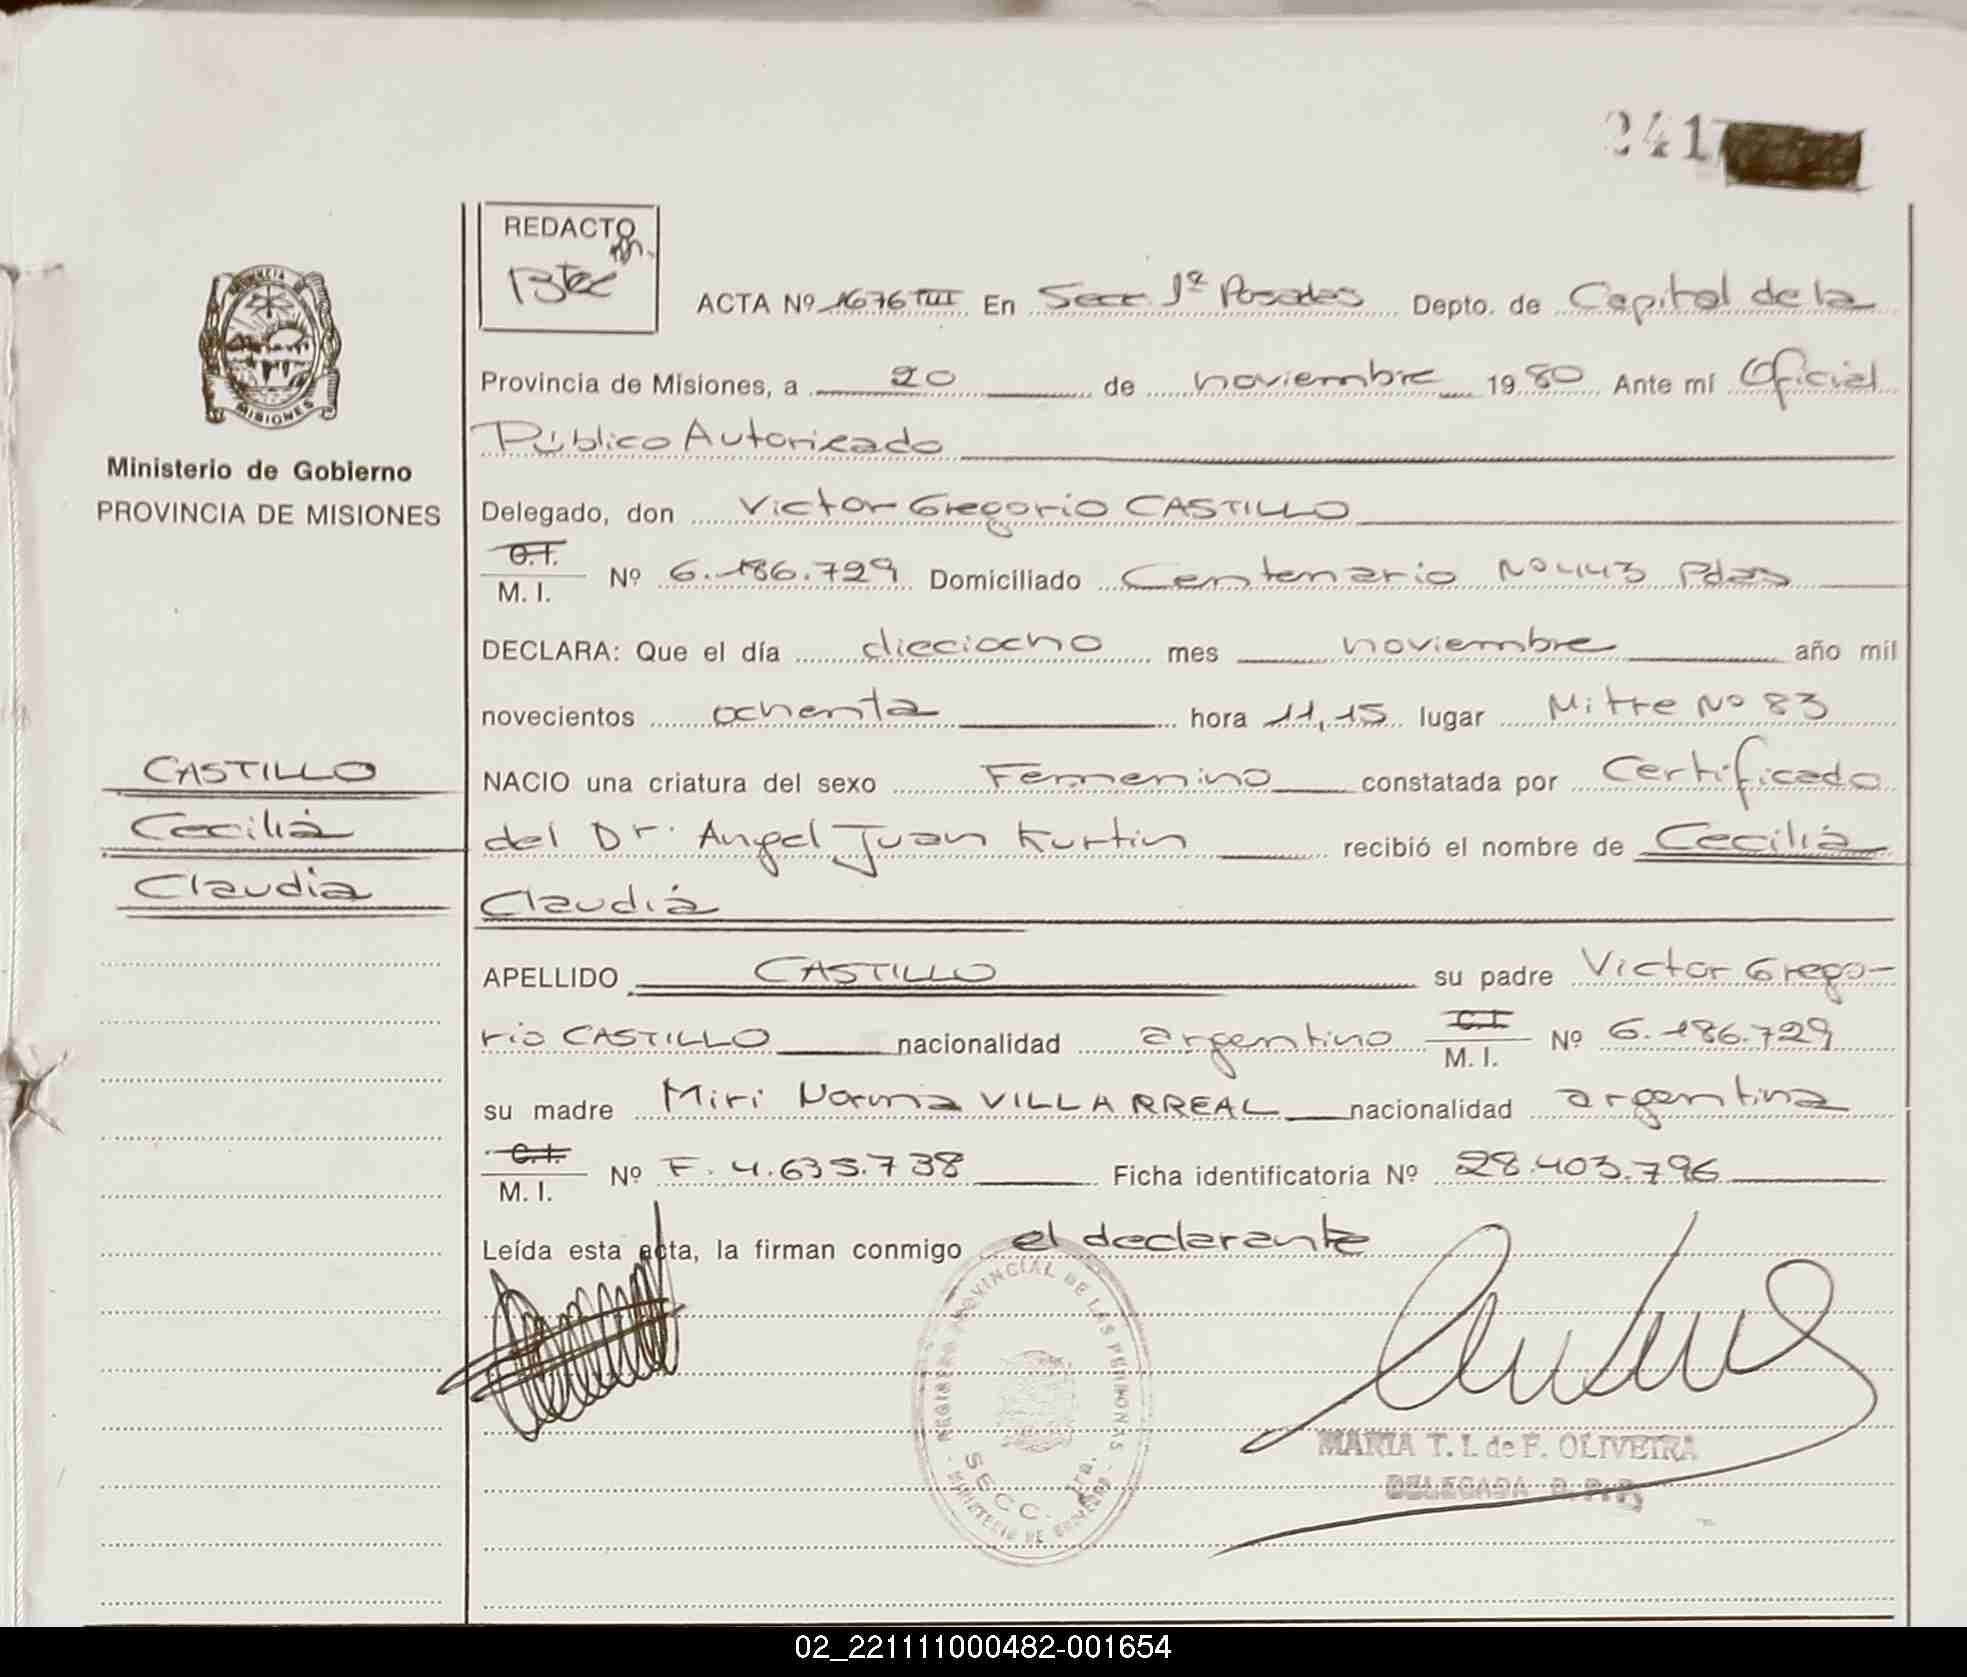 241
REDACTO
ACTA Nº 1676 TIII En Secc 1ª Posadas Depto. de Capital de la
Provincia de Misiones, a 20 de noviembre 1980 Ante mí Oficial
Público Autorizado
PROVINCIA DE
MISIONES
Ministerio de Gobierno
PROVINCIA DE MISIONES
Delegado, don Victor Gregorio CASTILLO
C.I.
M. I. Nº 6.186.729 Domiciliado Centenario Nº 443 Pdas
DECLARA: Que el día dieciocho mes noviembre año mil
novecientos ochenta hora 11,15 lugar Mitre Nº 83
CASTILLO
Cecilia
Claudia
NACIO una criatura del sexo Femenino constatada por Certificado
del Dr. Angel Juan Kurtin recibió el nombre de Cecilia
Claudia
APELLIDO CASTILLO su padre Victor Grego-
rio CASTILLO nacionalidad argentino C.I. M. I. Nº 6.186.729
su madre Miri Norma VILLARREAL nacionalidad argentina
C.I.
M. I. Nº F. 4.635.738 Ficha identificatoria Nº 28.403.796
Leída esta acta, la firman conmigo el declarante
REGISTRO PROVINCIAL DE LAS PERSONAS
SECC. 1ra.
MINISTERIO DE GOBIERNO
MARIA T. I. de F. OLIVEIRA
DELEGADA R. P. P.
02_221111000482-001654